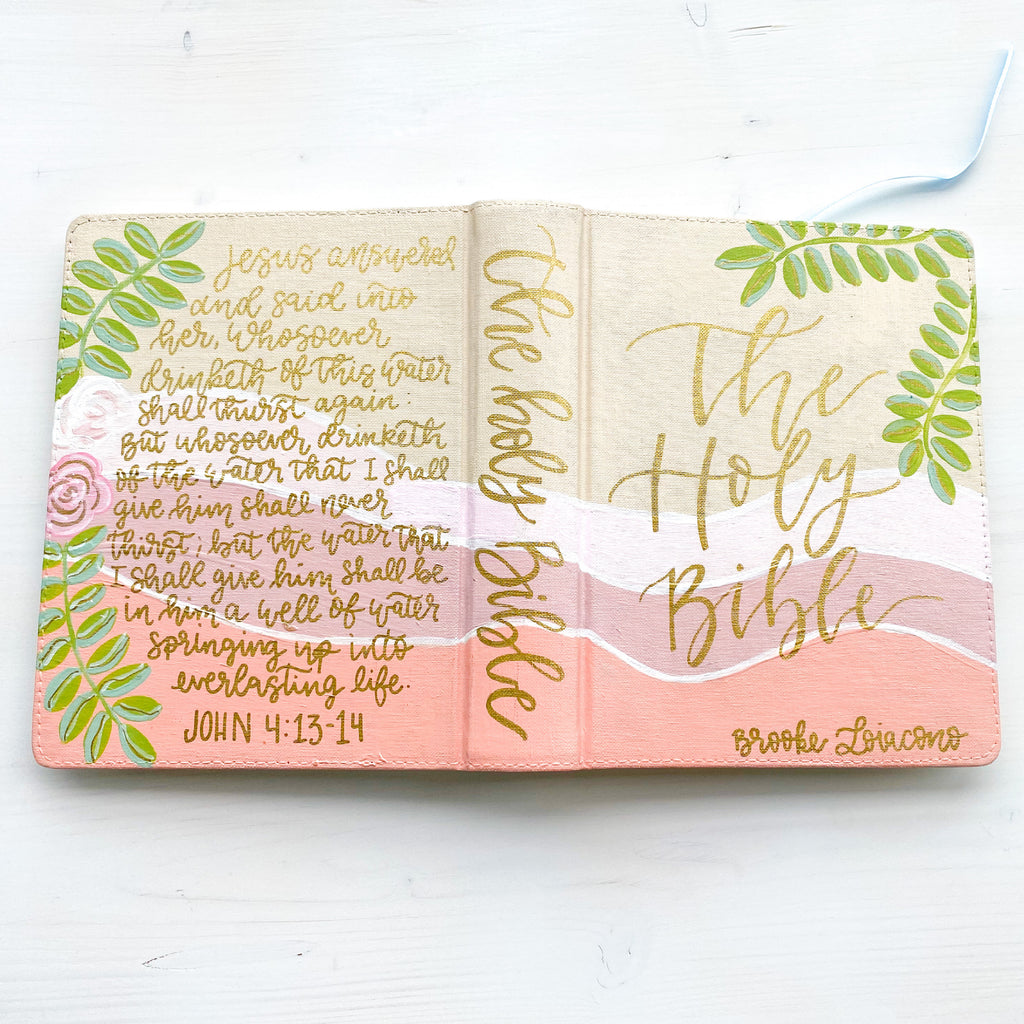 Jesus answered
and said into
her, whosoever
drinketh of this water
shall thurst again:
But whosoever drinketh
of the water that I shall
give him shall never
thirst; but the water that
I shall give him shall be
in him a well of water
springing up into
everlasting life.
JOHN 4:13-14
the holy Bible
The
Holy
Bible
Brooke Loiacono